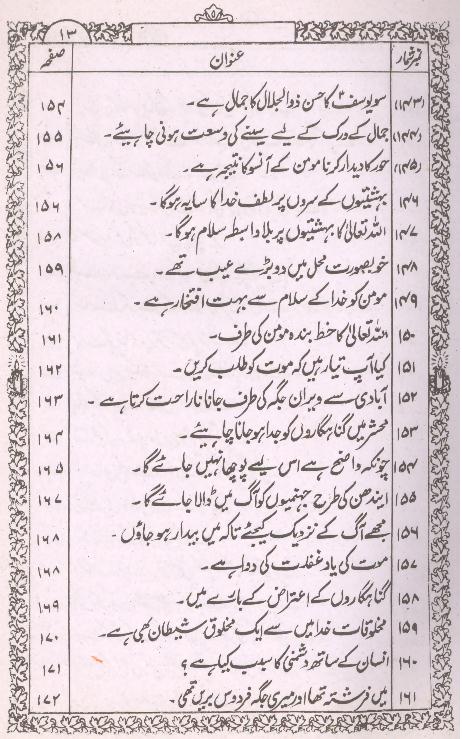 ۱۳
نمبر شمار عنوان صفحہ
(۱۴۳) سو یوسفؑ کا حسن ذوالجلال کا جمال ہے۔ ۱۵۴
(۱۴۴) جمال کے درک کے لیے سینے کی وسعت ہونی چاہیئے۔ ۱۵۵
(۱۴۵) حور کا دیدار کرنا مومن کے آنسو کا نتیجہ ہے۔ ۱۵۶
۱۴۶ بہشتیوں کے سروں پر لطف خدا کا سایہ ہوگا۔ ۱۵۶
۱۴۷ اللہ تعالیٰ کا بہشتیوں پر بلا واسطہ سلام ہوگا۔ ۱۵۸
۱۴۸ خوبصورت محل میں دو بڑے عیب تھے۔ ۱۵۹
۱۴۹ مومن کو خدا کے سلام سے بہت افتخار ہے۔ ۱۶۰
۱۵۰ اللہ تعالیٰ کا خط بندہ مومن کی طرف۔ ۱۶۱
۱۵۱ کیا آپ تیار ہیں کہ موت کو طلب کریں۔ ۱۶۲
۱۵۲ آبادی سے ویران جگہ کی طرف جانا ناراحت کرتا ہے۔ ۱۶۳
۱۵۳ محشر میں گناہگاروں کو جدا ہو جانا چاہیئے۔ ۱۶۴
۱۵۴ چونکہ واضح ہے اس لیے پوچھا نہیں جائے گا۔ ۱۶۵
۱۵۵ ایندھن کی طرح جہنمیوں کو آگ میں ڈالا جائے گا۔ ۱۶۷
۱۵۶ مجھے آگ کے نزدیک کیجئے تاکہ میں بیدار ہو جاؤں۔ ۱۶۸
۱۵۷ موت کی یاد غفلت کی دوا ہے۔ ۱۶۸
۱۵۸ گناہگاروں کے اعتراض کے بارے میں۔ ۱۶۹
۱۵۹ مخلوقات خدا میں سے ایک مخلوق شیطان بھی ہے۔ ۱۷۰
۱۶۰ انسان کے ساتھ دشمنی کا سبب کیا ہے؟ ۱۷۱
۱۶۱ میں فرشتہ تھا اور میری جگہ فردوس بریں تھی۔ ۱۷۲